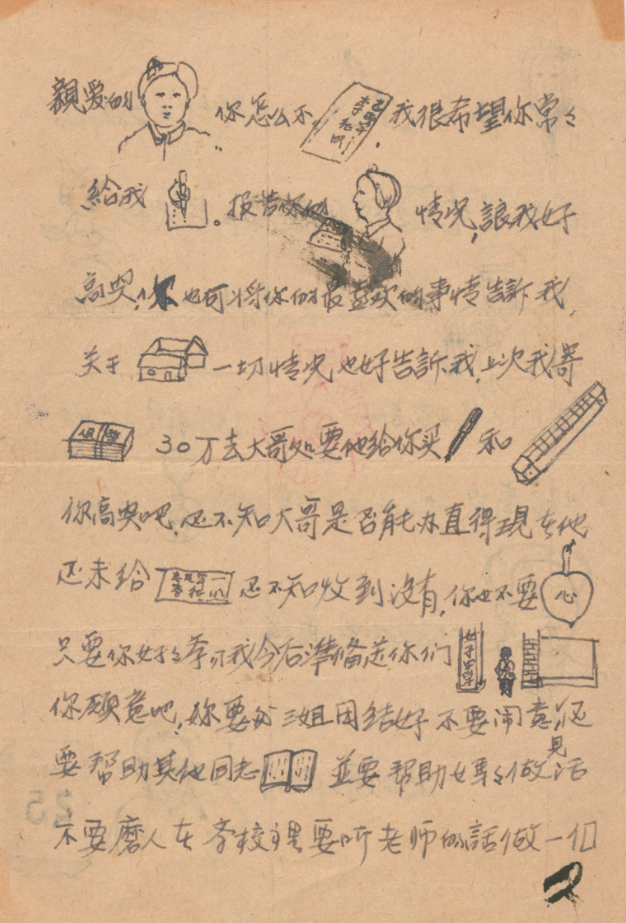 親爱的 你怎么不 我很希望你常々
給我 。报告你的 情况,讓我好
高兴,你也可将你的最喜欢的事情告訴我,
关于 一切情况也好告訴我,上次我寄
30万去大哥处要他給你买 和
你高兴吧,还不知大哥是否能办直得現在他
还未给 还不知收到没有,你也不要 心
只要你好々学习我今后準备送你们 女子中学
你願意吧,你要和三姐团结好不要闹意見还
要帮助其他同志 並要帮助女事々做活
不要磨人在学校裡要听老师的話做一个
2